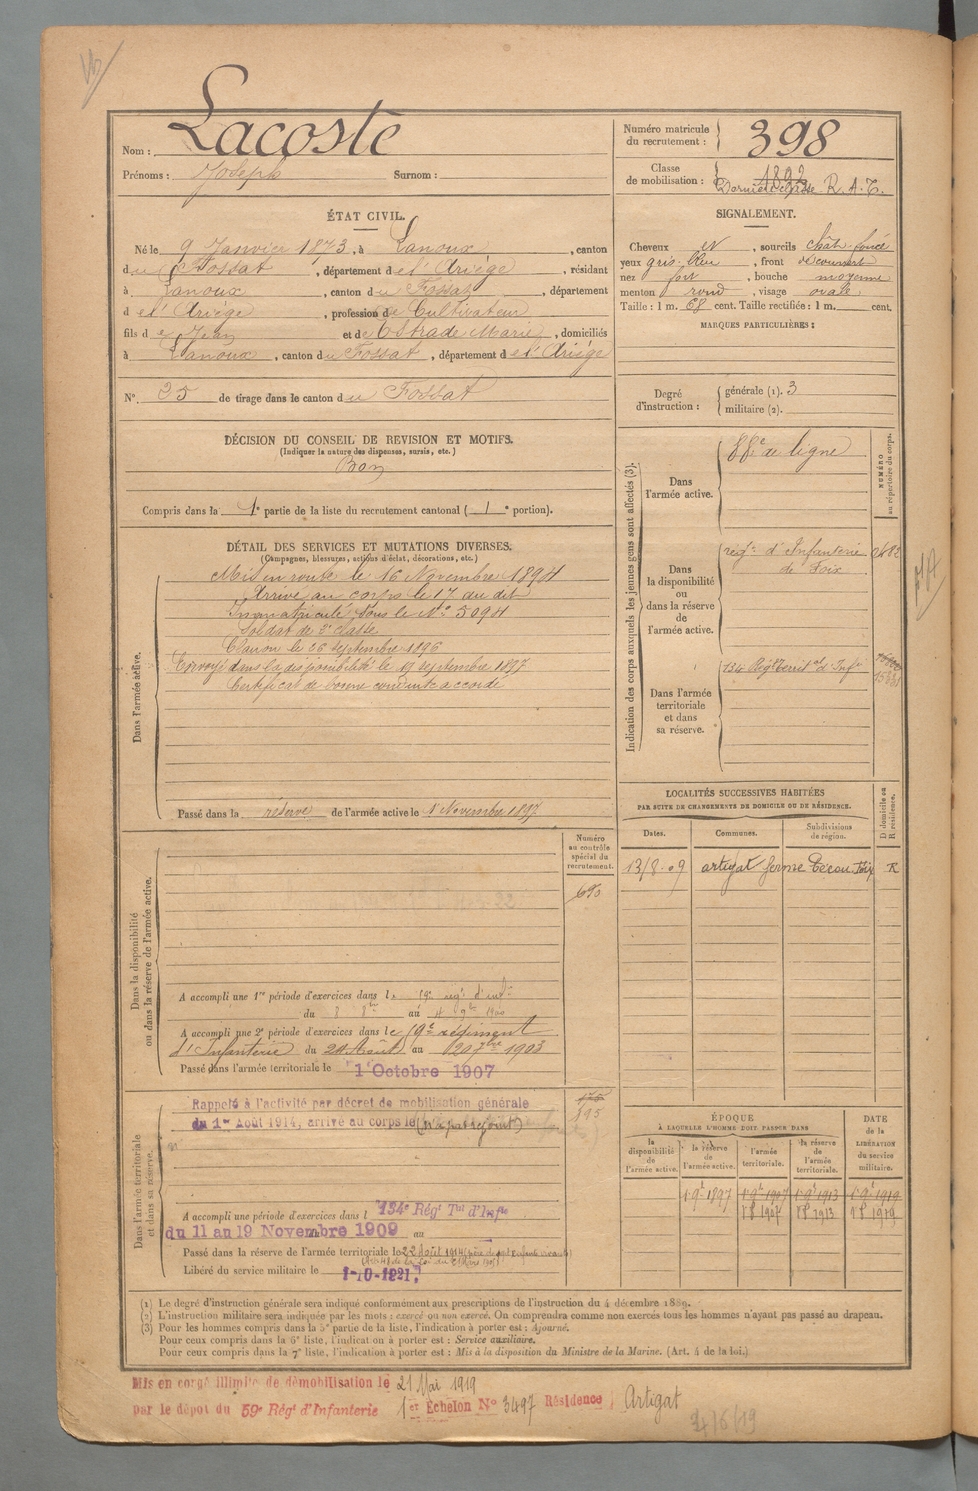 Nom : Lacoste
Prénoms : Joseph Surnom :
Numéro matricule du recrutement : 398
Classe de mobilisation : 1892
Dernière classe R. A. T.
ÉTAT CIVIL.
Né le 9 Janvier 1873, à Lanoux, canton
du Fossat, département de l'Ariège, résidant
à Lanoux, canton du Fossat, département
d e l'Ariège, profession de Cultivateur
fils de Jean et de Estrade Marie, domiciliés
à Lanoux, canton du Fossat, département de l'Ariège
N° 25 de tirage dans le canton du Fossat
SIGNALEMENT.
Cheveux et, sourcils chât. foncé
yeux gris-bleu, front découvert
nez fort, bouche moyenne
menton rond, visage ovale
Taille : 1 m. 68 cent. Taille rectifiée : 1 m. cent.
MARQUES PARTICULIÈRES :
Degré d'instruction : générale (1). 3
militaire (2).
DÉCISION DU CONSEIL DE REVISION ET MOTIFS.
(Indiquer la nature des dispenses, sursis, etc.)
Bon
Compris dans la 1e partie de la liste du recrutement cantonal ( 1e portion).
DÉTAIL DES SERVICES ET MUTATIONS DIVERSES.
(Campagnes, blessures, actions d'éclat, décorations, etc.)
Dans l'armée active.
Mis en route le 16 Novembre 1894
Arrivé au corps le 17 du dit
Immatriculé sous le N° 5094
Soldat de 2e classe
Clairon le 26 septembre 1896
Envoyé dans la disponibilité le 19 septembre 1897
Certificat de bonne conduite accordé
Passé dans la réserve de l'armée active le 1er Novembre 1897
Indication des corps auxquels les jeunes gens sont affectés (3).
NUMÉRO au répertoire du corps.
Dans l'armée active.
88e de ligne
Dans la disponibilité ou dans la réserve de l'armée active.
régt d'Infanterie
de Foix
Dans l'armée territoriale et dans sa réserve.
134 Régt Territal d'Infie
LOCALITÉS SUCCESSIVES HABITÉES
PAR SUITE DE CHANGEMENTS DE DOMICILE OU DE RÉSIDENCE.
Dates. Communes. Subdivisions de région. D domicile ou R résidence.
13/8-09 artigat ferme Foix R
Dans la disponibilité ou dans la réserve de l'armée active.
Numéro au contrôle spécial du recrutement.
690
A accompli une 1re période d'exercices dans le régt d'inf.
du 8 8bre au 4 9bre 1900
A accompli une 2e période d'exercices dans le régiment
d'Infanterie du 24 Août au 1903
Passé dans l'armée territoriale le 1 Octobre 1907
Dans l'armée territoriale et dans sa réserve.
Rappelé à l'activité par décret de mobilisation générale
du 1er Août 1914, arrivé au corps le (n'a pas rejoint)
A accompli une période d'exercices dans l 134e Régt Tal d'Infie
du 11 au 19 Novembre 1909 au
Passé dans la réserve de l'armée territoriale le 22 Août 1914
Libéré du service militaire le 1-10-1921
ÉPOQUE
À LAQUELLE L'HOMME DOIT PASSER DANS
la disponibilité de l'armée active. la réserve de l'armée active. l'armée territoriale. la réserve de l'armée territoriale. DATE de la LIBÉRATION du service militaire.
1 9e 1897 1 9e 1907 1 9e 1913 1 9e 1919
1907 1913 1919
(1) Le degré d'instruction générale sera indiqué conformément aux prescriptions de l'instruction du 4 décembre 1889.
(2) L'instruction militaire sera indiquée par les mots : exercé ou non exercé. On comprendra comme non exercés tous les hommes n'ayant pas passé au drapeau.
(3) Pour les hommes compris dans la 5e partie de la liste, l'indication à porter est : Ajourné.
Pour ceux compris dans la 6e liste, l'indication à porter est : Service auxiliaire.
Pour ceux compris dans la 7e liste, l'indication à porter est : Mis à la disposition du Ministre de la Marine. (Art. 4 de la loi.)
Mis en congé illimité de démobilisation le 21 Mai 1919
par le dépôt du 59e Régt d'Infanterie 1er Échelon N° 3497 Résidence Artigat